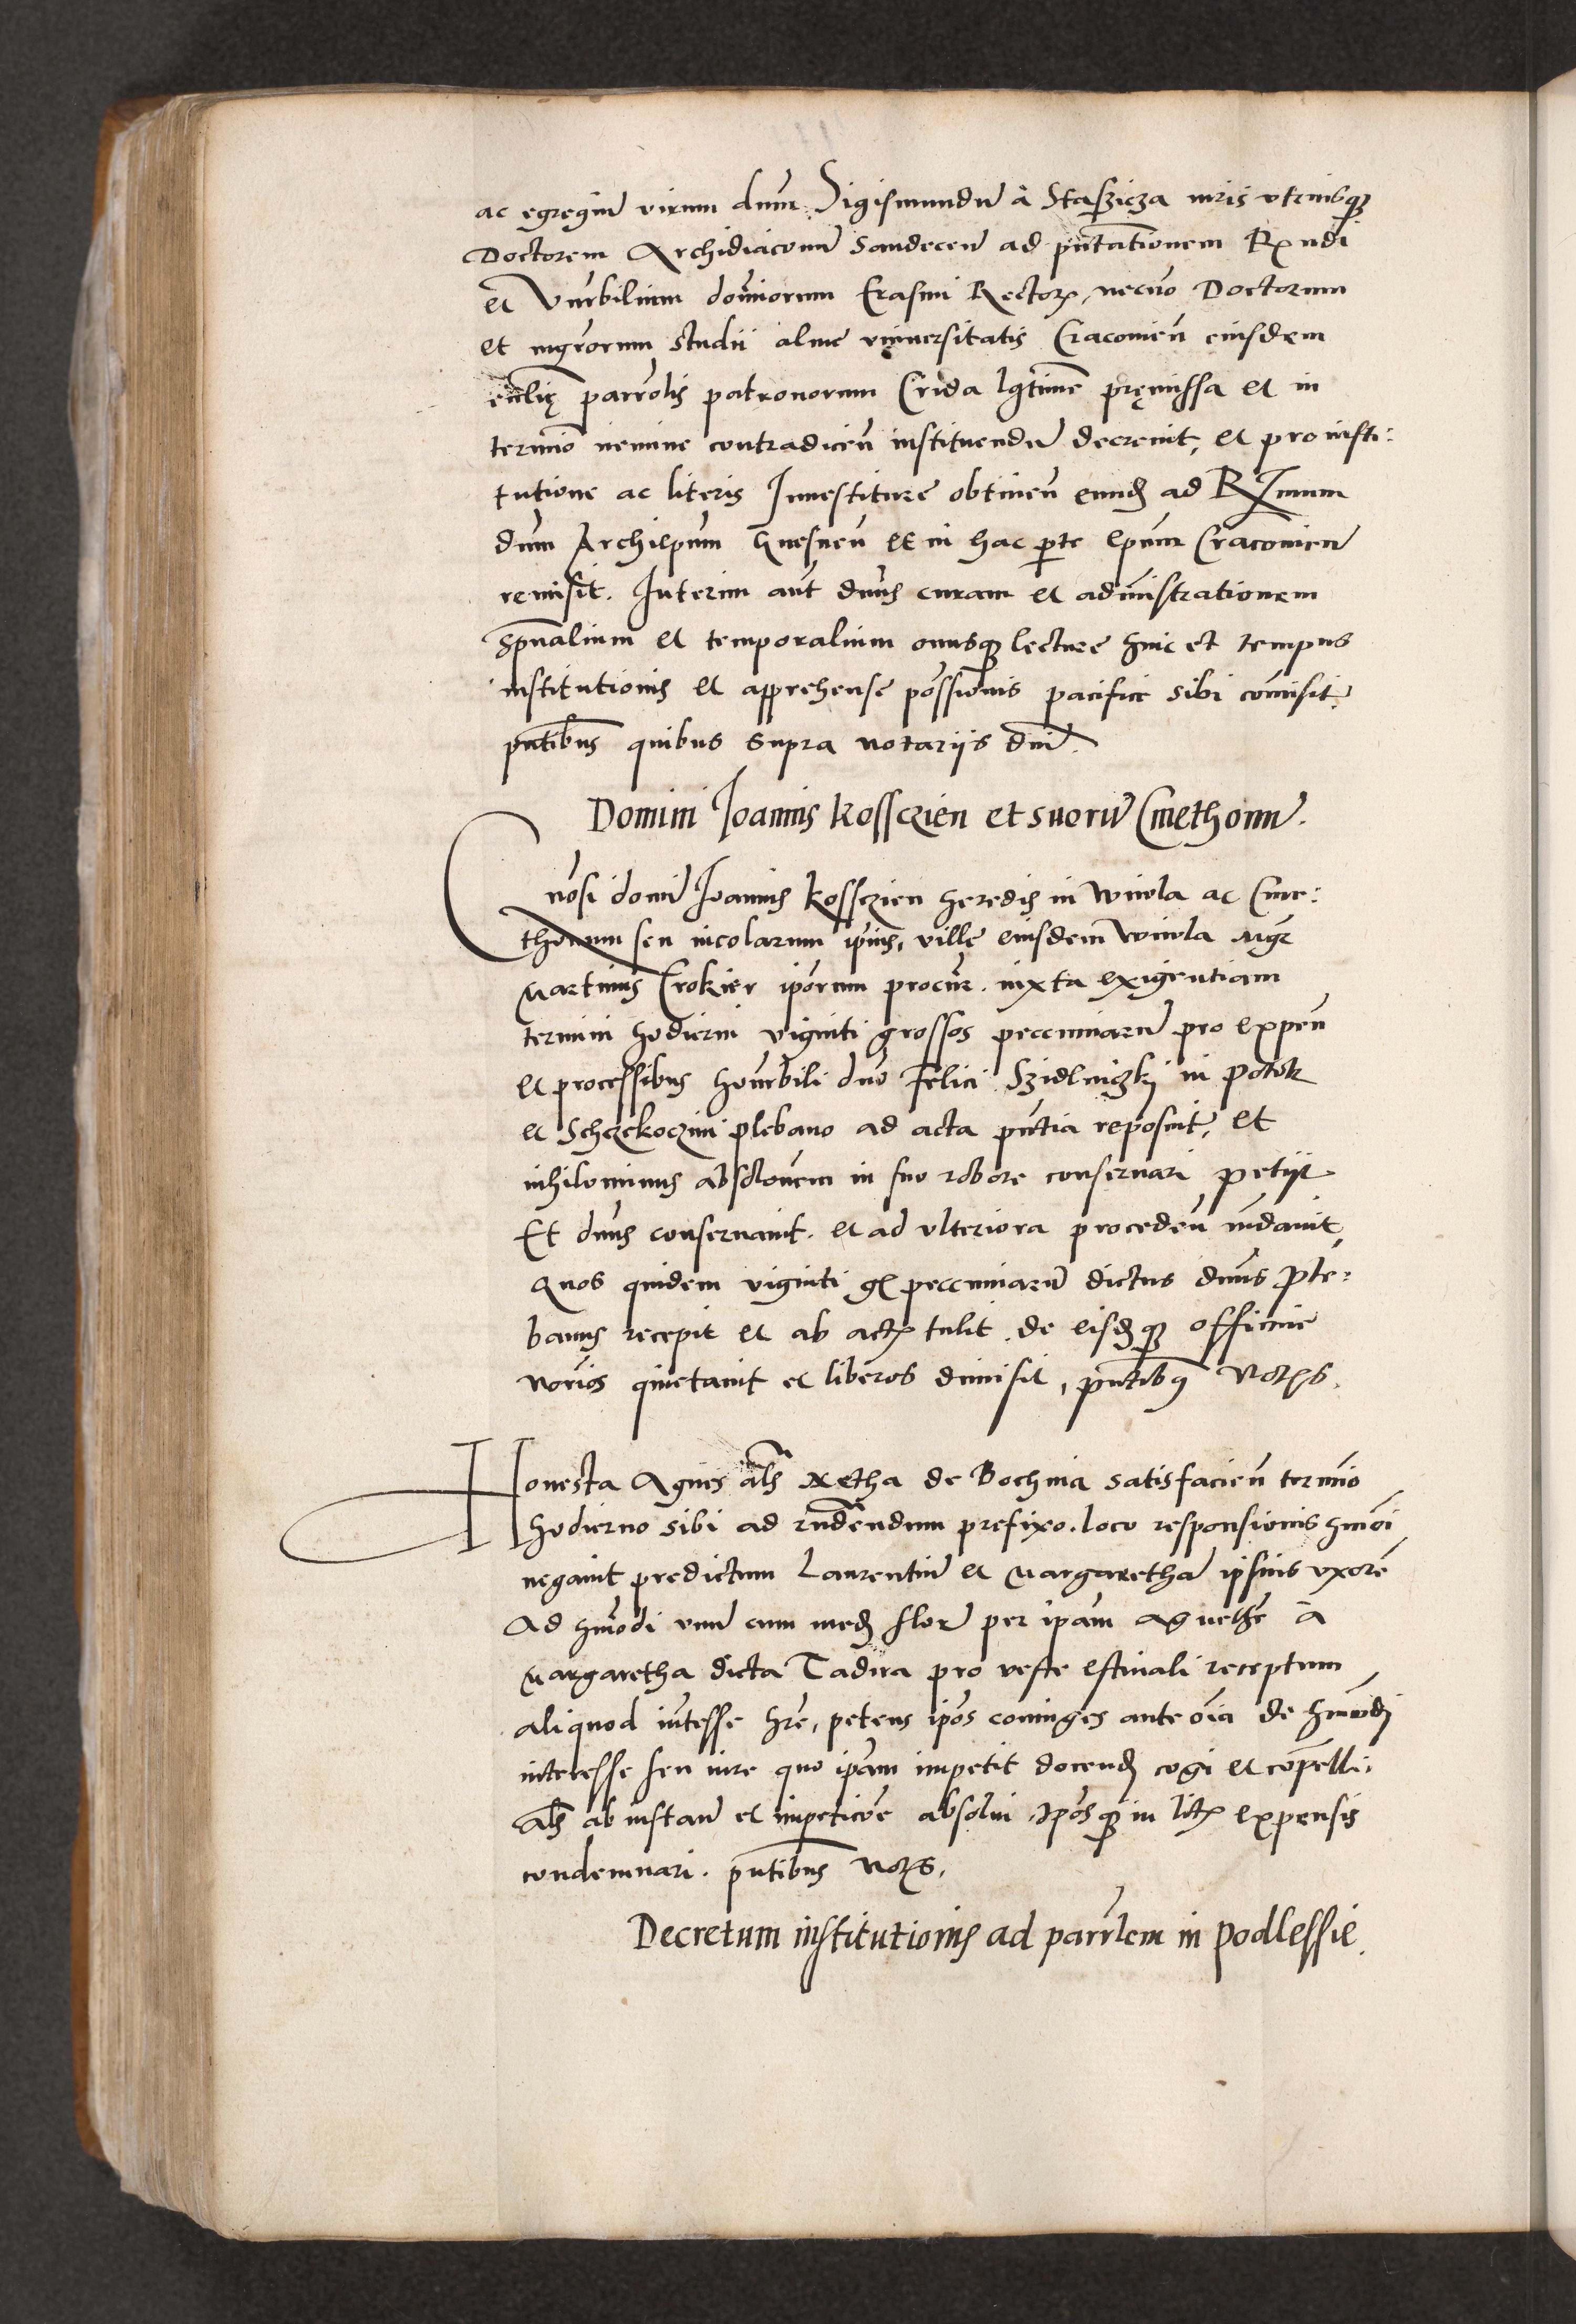 ac egregiū virum dnm̄ Sigismundū à Staszicza iuris vtriusq3
Doctorem Archidiaconū Sandeceñ ad pn̄tātionem Rx̄ndi
et Vn̄rbilium dominorum Erasmi Rectorꝭ, necnō Doctorum
et mgr̄orum studii alme vniuersitatis Cracovieñ eiusdem
ecclīę parrōlis patronorum Crida lgttime pręmissa et in
termīo nemine contradiceñ instituendū decreuit, et pro insti:
tutione ac literis Inuestiture obtineñ eund̄ ad Rx̄mum
dnm̄ Archiep̄um Gnesneñ et in hac p̄te ep̄um Cracovieñ
remisit. Interim aūt dn̄s curam et admīstrationem
sp̄ualium et temporalium onusq3 lecture hinc et tempus
institutionis et apprehense pōssionis pacifice sibi comīsit
pn̄tibus quibus supra notariis dn̄i.
Domini Ioannis Kossczien et suorū Cmethonū.
Gnōsi domī Ioannis Kossczien heredis in Wnola ac Cme:
thonum seu incolarum ipīus, ville eiusdem Wnola Mgr̄
Martinus Crokier ipōrum procūr. iuxta exigentiam
termini hodierni viginti grossos peccuniarū pro expeñ
et processibus honr̄bili dn̄o Felici Szidlniczkj in Potok
et Schczekoczini plebano ad acta pn̄tia reposuit, et
nihilominus absolōnem in suo robore conseruari petijt
Et dn̄s conseruauit. et ad vlteriora procedeñ mādauit
Quos quidem viginti gꝭ peccuniarū dictus dn̄s Ple:
banus recepit et ab actꝭ tulit. de eisd̄q3 officine
norīos quietauit et liberos dimisit, pn̄tibꝰ Notꝭs.
Honesta Agnes als̄ Netha de Bochnia satisfacieñ termīo
hodierno sibi ad rn̄dendum prefixo. loco responsionis hmōi
negauit predictum Laurentiū et Margarethā ipsius vxorē
Ad hmōdi vnū cum med̄ flor̄ per ipām Agnethē à
Margaretha dicta Tadira pro veste estiuali receptum
aliquod int̄esse hr̄e, petens ipōs coniuges ante oīa de hmōdi
interesse seu iure quo ipām impetit docend̄ cogi et cōpelli.
Als̄ ab instañ et impeticōe absolui. Ipōsq3 in litꝭ expensis
condemnari. pn̄tibus Notꝭs.
Decretum institutionis ad parr̄lem in Podlessie.